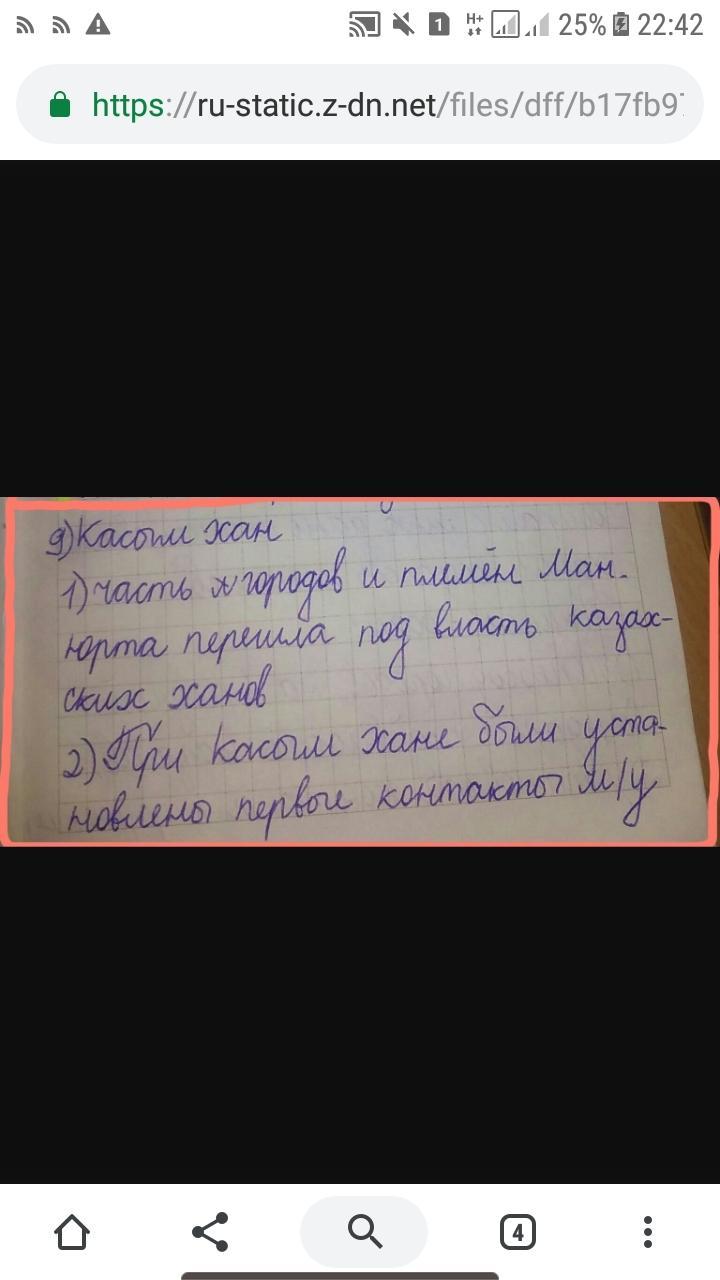 25% 22:42
https://ru-static.z-dn.net/files/dff/b17fb9
д) Касым хан
1) часть городов и племён Ман.
юрта перешла под власть казах-
ских ханов
2) При Касым хане были уста-
новлены первые контакты м/у
4